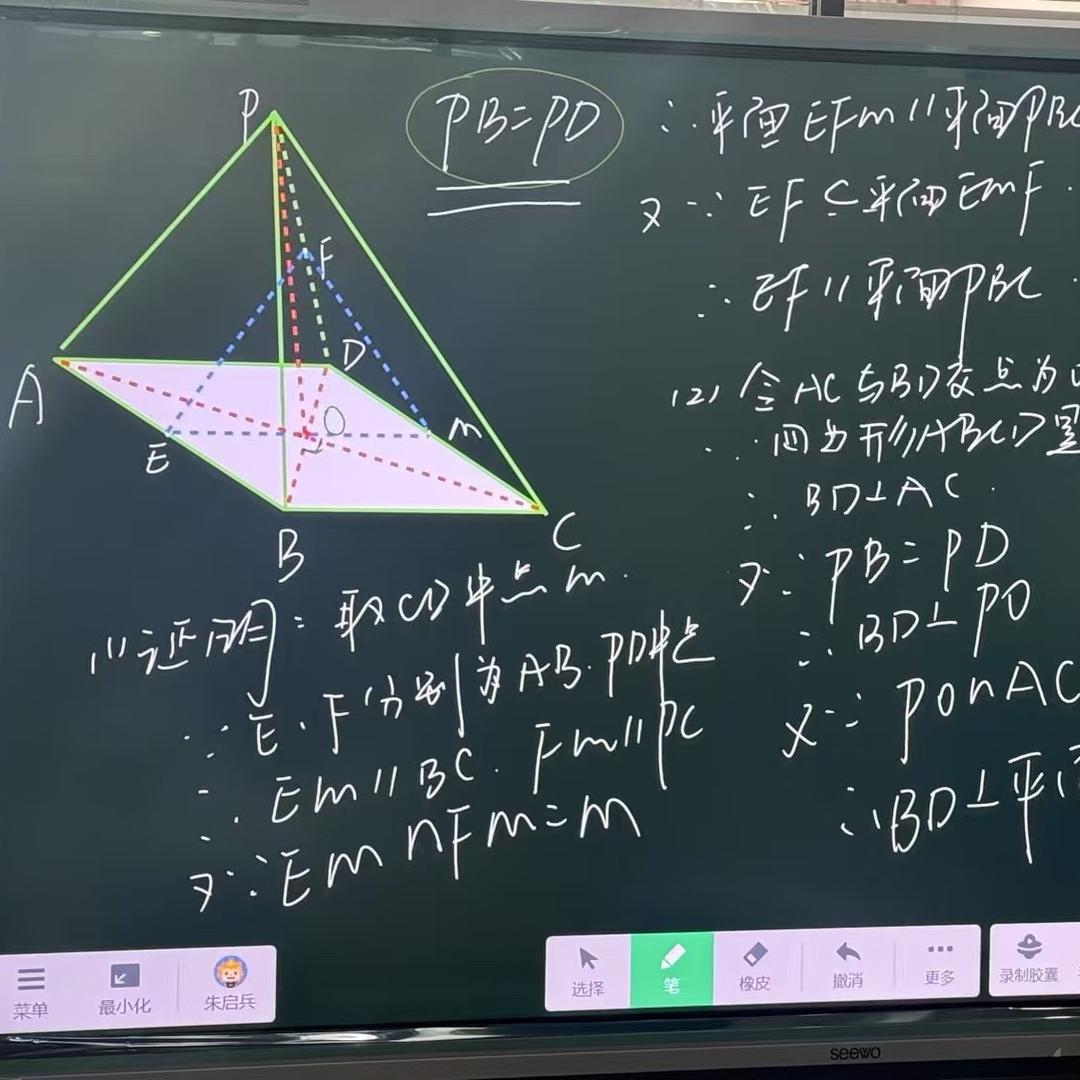 P
PB=PD
F
A
D
O
E
M
B
C
(1)证明：取CD中点m.
∵E.F分别为AB.PD中点
∴Em∥BC. Fm∥PC
又∵Em∩Fm=m
∴平面EFm∥平面PBC
又∵EF⊆平面EmF.
∴EF∥平面PBC.
(2)令AC与BD交点为
∵四边形ABCD
∴BD⊥AC.
又∵PB=PD
∴BD⊥PO
又∵PO∩AC
∴BD⊥平
菜单
最小化
朱启兵
选择
笔
橡皮
撤消
更多
录制胶囊
seewo